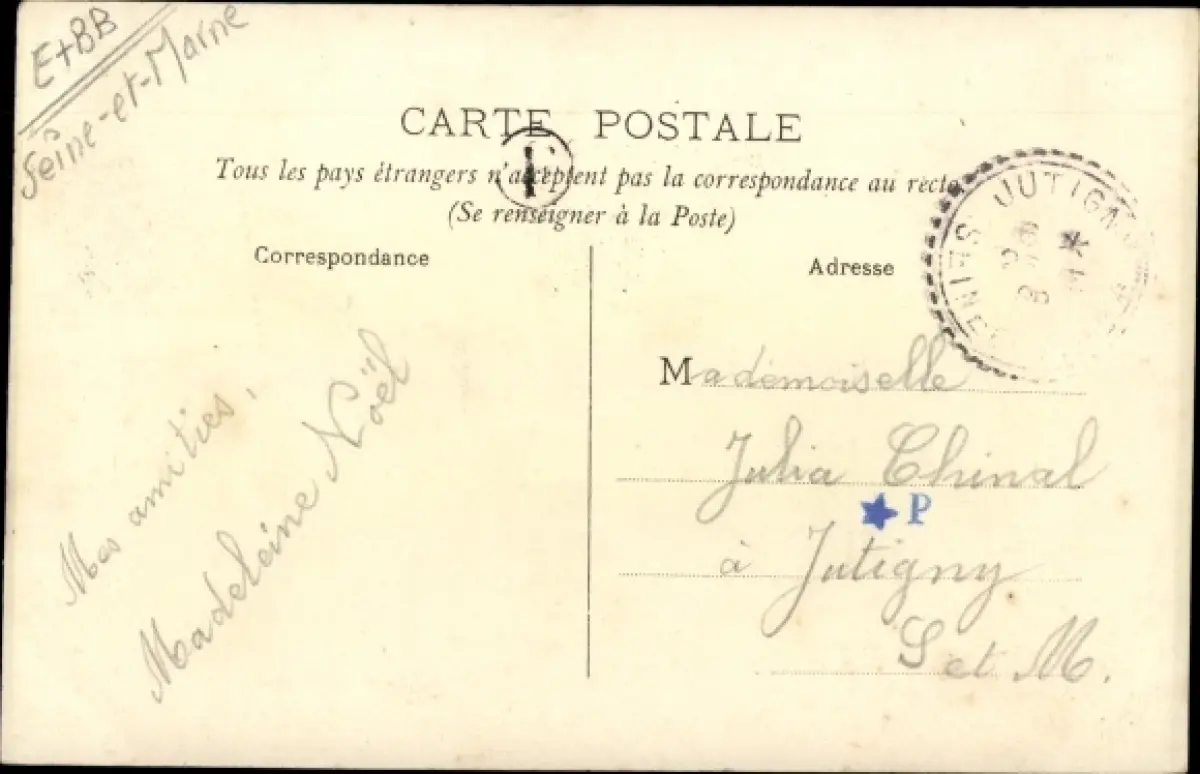 E+BB
Seine-et-Marne
CARTE POSTALE
Tous les pays étrangers n'acceptent pas la correspondance au recto
(Se renseigner à la Poste)
Correspondance
Adresse
JUTIGN
SEINE
Mademoiselle
Julia Chinal
P
à Jutigny
S et M.
Mes amitiés,
Madeleine Noël